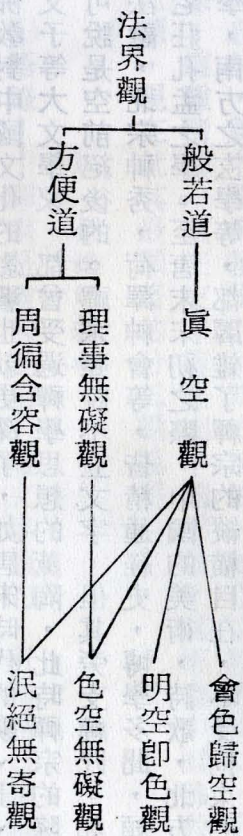 法界觀
般若道
方便道
眞空觀
理事無礙觀
周徧含容觀
會色歸空觀
明空卽色觀
色空無礙觀
泯絕無寄觀